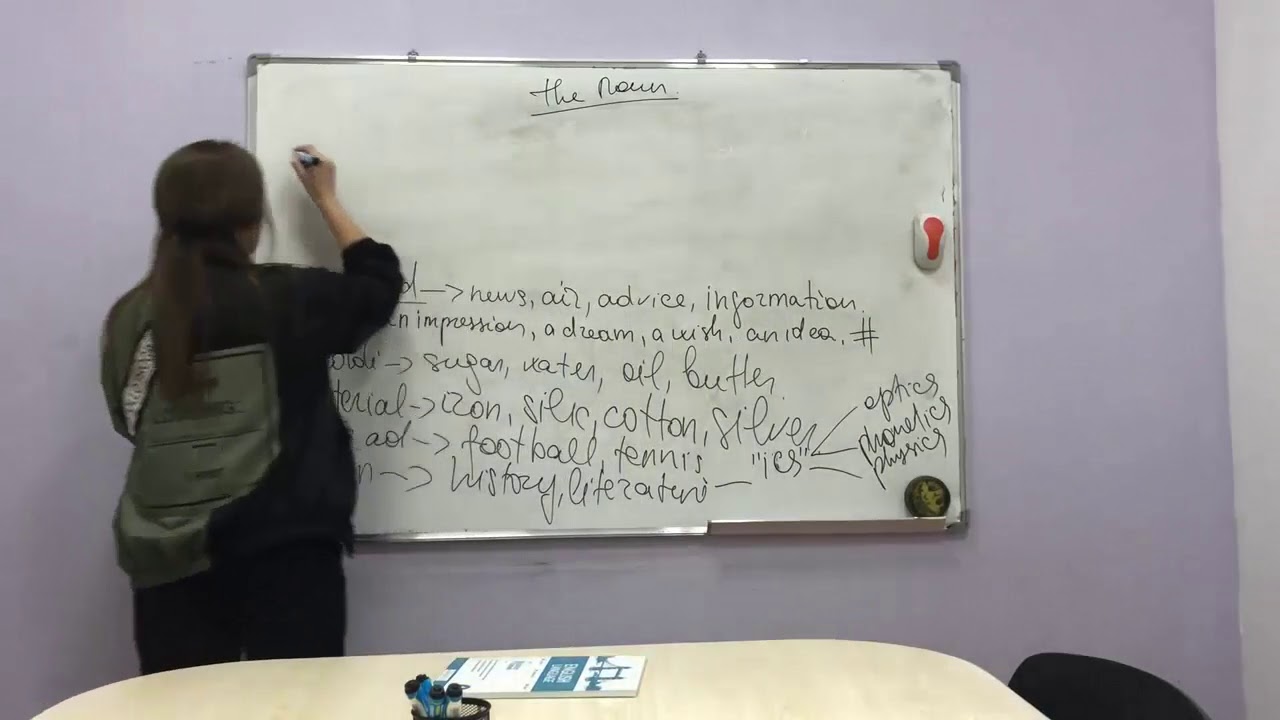 the Noun
d -> news, air, advice, information
n impression, a dream, a wish, an idea, #
-> sugar, water, oil, butter
terial -> iron, silk, cotton, silver
ad -> football, tennis
n -> history, literature - "ics"
optics
phonetics
physics
ENGLISH
LANGUAGE